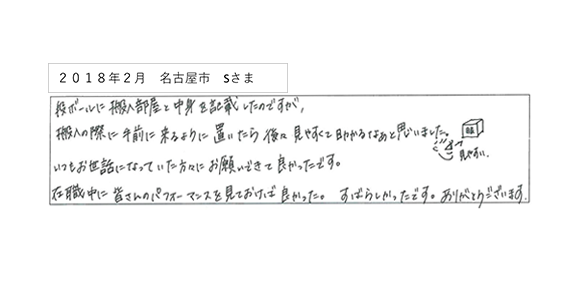 2018年2月 名古屋市 Sさま
段ボールに搬入部屋と中身を記載したのですが、
搬入の際に手前に来るように置いたら後々見やすくて助かるなあと思いました。
見やすい.
いつもお世話になっていた方々にお願いできて良かったです。
在職中に皆さんのパフォーマンスを見ておけば良かった。 すばらしかったです。ありがとうございます.